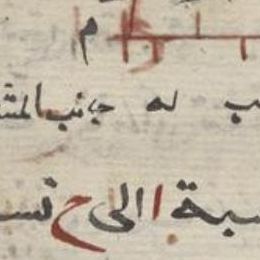 م
ـب له جانب المتـ
ـسبة ا الى ح نسـ